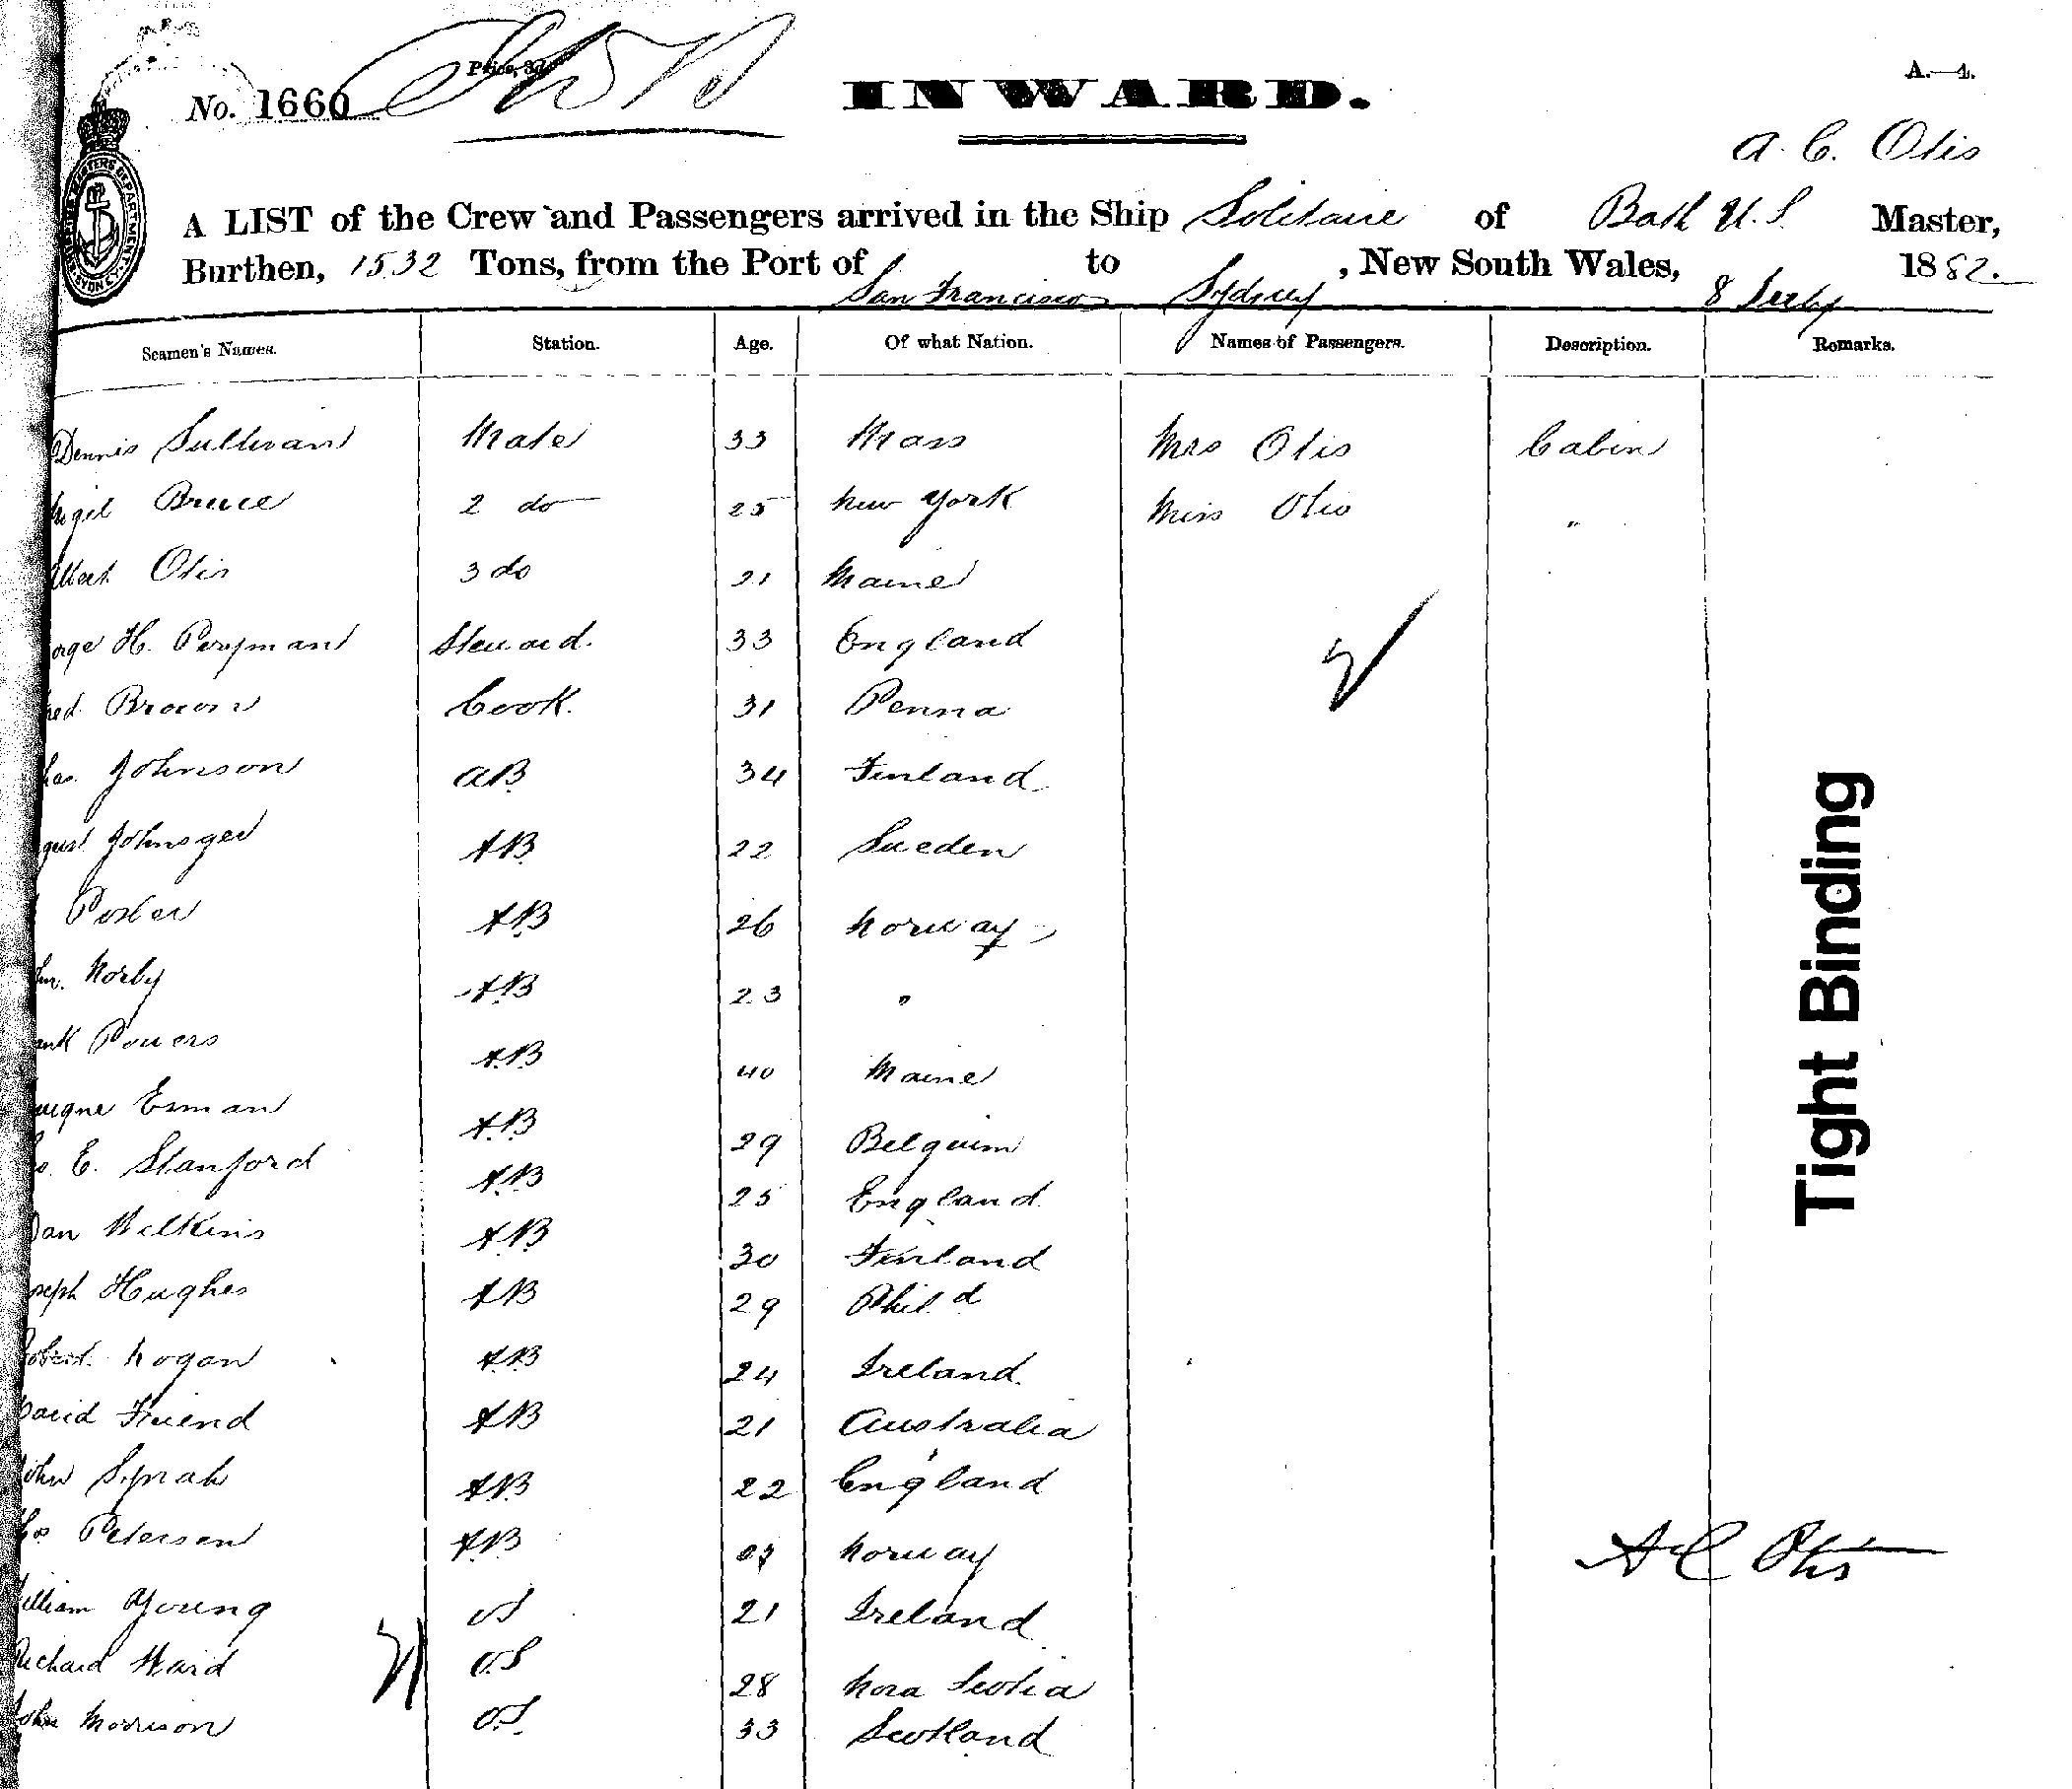 A.—4.
No. 1660 Price, 3d. INWARD.
A. C. Otis
A LIST of the Crew and Passengers arrived in the Ship Solitaire of Bath U.S. Master,
Burthen, 1532 Tons, from the Port of San Francisco to Sydney, New South Wales, 8 July 1882.
Seamen's Names. Station. Age. Of what Nation. Names of Passengers. Description. Remarks.
Dennis Sullivan Mate 33 Mass Mrs Otis Cabin
Bruce 2 do 25 New York Miss Otis "
Otis 3 do 21 Maine
orge H. Perryman Steward. 33 England
Brown Cook. 31 Penna
has. Johnson AB 34 Finland
gust AB 22 Sweden
AB 26 Norway
Norby AB 23 "
ank Powers AB 40 Maine
Esman AB 29 Belguim
E. Stanford AB 25 England
Dan Wilkins AB 30 Finland
oseph Hughes AB 29 Phild
obert Hogan AB 24 Ireland
David Friend AB 21 Australia
John AB 22 England
Petersen AB Norway
William Young OS 21 Ireland
Richard Ward OS 28 Nova Scotia
John Morrison OS 33 Scotland
A C Otis
Tight Binding